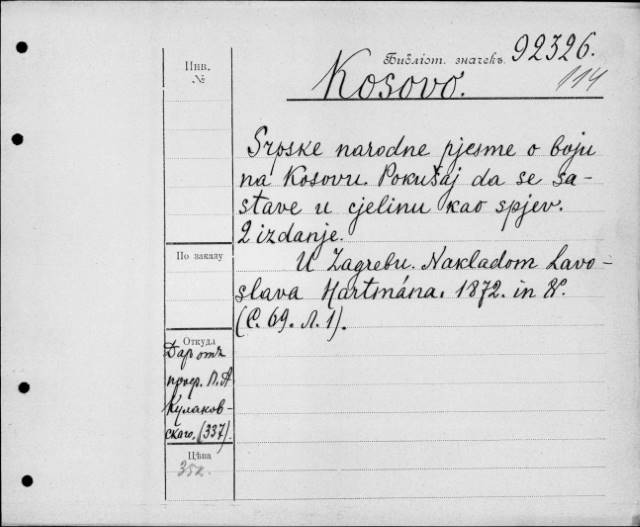 Библіот. значекъ 92326.
114
Kosovo.
Инв.
№
Srpske narodne pjesme o boju
na Kosovu. Pokušaj da se sa-
stave u cjelinu kao spjev.
2 izdanje.
U Zagrebu. Nakladom Lavo-
slava Hartmána. 1872. in 8°.
(С. 69. Л. 1).
По заказу
Откуда
Даръ отъ
проф. П. А
Кулаков-
скаго. (337).
Цѣна
35к.